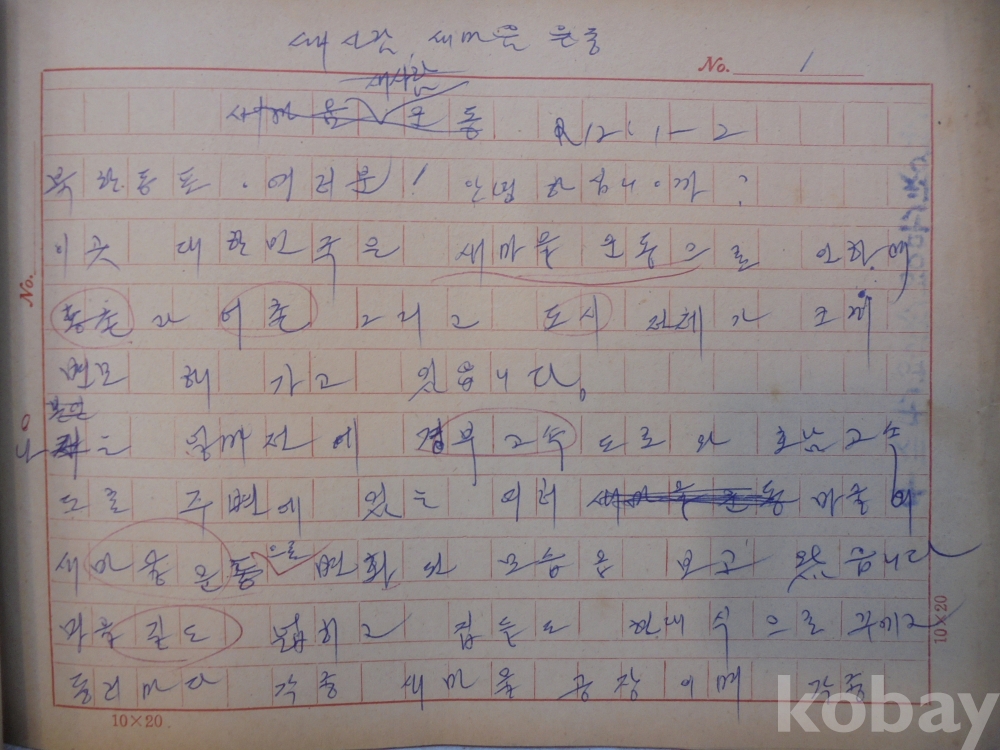 새사람 새마을 운동
No. 1
새사람
새마을 운동 R 12:1-2
북한동포 여러분! 안녕하십니까?
이곳 대한민국은 새마을 운동으로 인하여
농촌과 어촌 그리고 도시 전체가 크게
변모해 가고 있읍니다.
본인
는 얼마전에 경부고속도로와 호남고속
도로 주변에 있는 여러 새마을운동 마을이
새마을운동으로 변화된 모습을 보고 왔읍니다
마을길도 넓히고 집들도 현대식으로 꾸며고
들리마다 각종 새마을 공장이며 각종
No.
10×20
10×20
kobay